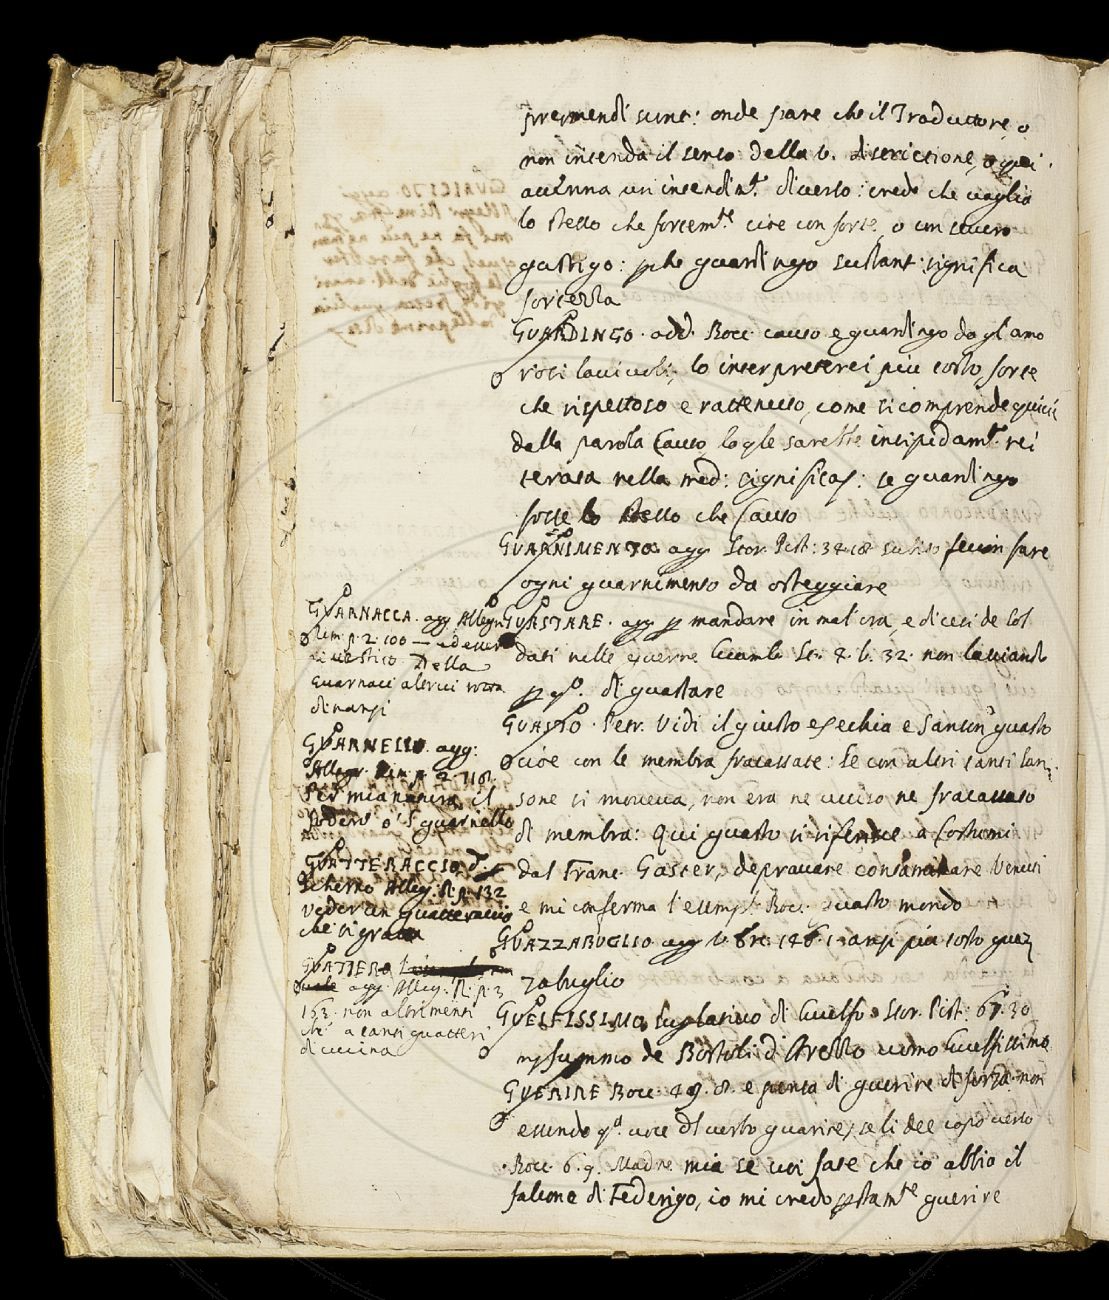 sunt: onde pare che il Traduttore o
non intenda il senso della v. discrictione, o qui
un intendim.to diverso: credo che vaglia
lo stesso che fortem.te cioè con forte, o con severo
gastigo: pche guardingo sustant: significa
fortezza
GUARDINGO. add. Bocc. cauto e guardingo da gl'amo
rosi lo interpreterei più tosto forte
che rispettoso e rattenuto, come si comprende quivi
dalla parola Cauto, la qle sarebbe insipidam.te rei
terata nella med: significaz: se guardingo
fosse lo stesso che Cauto
GUARNIMENTO. agg. Stor. Pist: fare
ogni guarnimento da osteggiare
GUASTARE. agg p mandare in mal'ora, e dicesi de Sol
dati nelle guerre St. 4. b. 32. non lasciando
p qo. di guastare
GUASTO. Petr. Vidi il giusto Ezechia e Sanson guasto
cioè con le membra fracassate: Se con altri santi San
sone si moveva, non era ne ucciso ne fracassato
di membra: Qui guasto si riferisce a Costumi
dal Franc. Gaster, depravare Venusi
e mi conferma l'esemp: Bocc. guasto mondo
GUAZZABUGLIO agg anzi più tosto guaz
zabuglio
GUELFISSIMO, Suplativo di Guelfo. Stor. Pist: 67. 30
mess. de Bostoli d'Arezzo uomo Guelfissimo
GUERIRE Bocc. 49. 8. e pensa di guerire di forza. non
essendo qo. voce dl verbo guarire, se li dee verso
Bocc. 6. 9. Madre mia se voi fate che io abbia il
falcone di Federigo, io mi credo pstam.te guerire
GUARNACCA. agg Allegr.
Rim. p. 2. 100 — ed esser
Della
Guarnacca rotta
dinanzi
GUARNELLO. agg:
Allegr. Rim p. 2. 118.
mia il
o' l guarnello
GUATTERACCIO, d.
scherno Alleg. R. p. 132
veder un guatteraccio
che si gratta
GUATTERO
agg. Alleg. R. p. 3
153. non altrimenti
che a tanti guatteri
di cucina